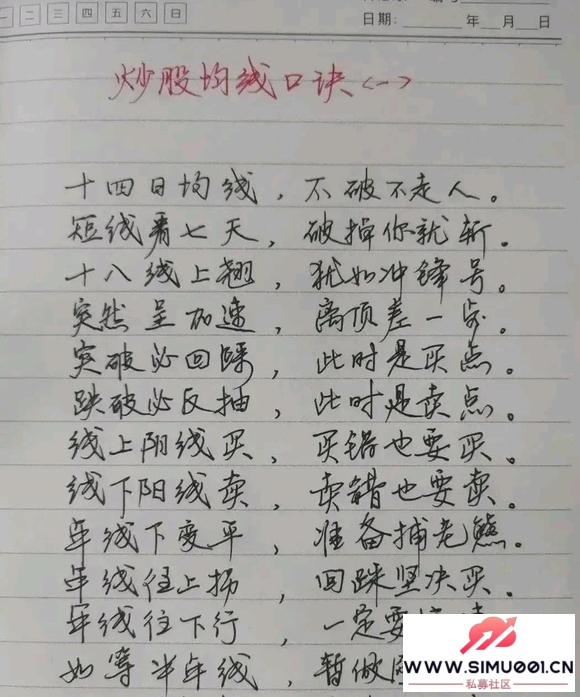 一 二 三 四 五 六 日
日期: 年 月 日
炒股均线口诀(一)
十四日均线，不破不走人。
短线看七天，破掉你就斩。
十八线上翘，犹如冲锋号。
突然呈加速，离顶差一步。
突破必回踩，此时是买点。
跌破必反抽，此时是卖点。
线上阴线买，买错也要买。
线下阳线卖，卖错也要卖。
年线下变平，准备捕老熊。
年线往上扬，回踩坚决买。
年线往下行，一定要
如等半年线，暂做
WWW.SIMU001.CN
私募社区